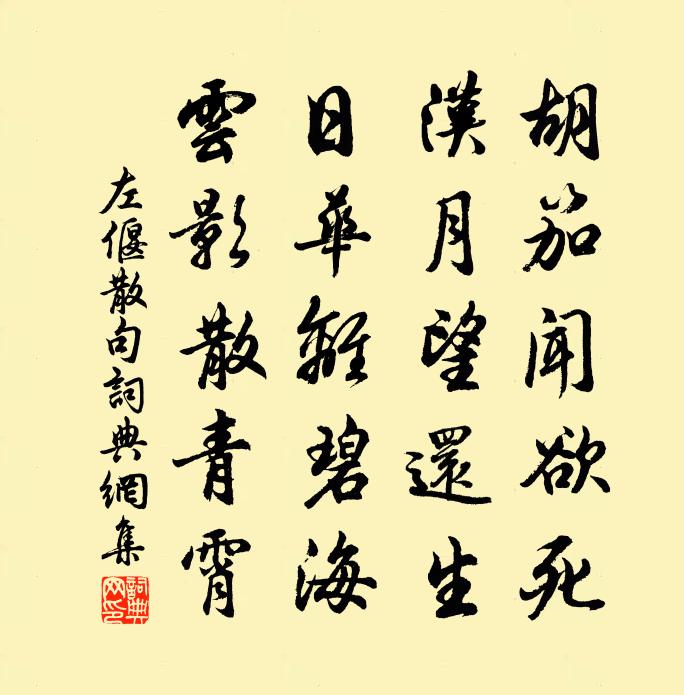 胡笳聞欲死
漢月望還生
日華離碧海
雲影散青霄
左偃散句詞典網集
詞典網印